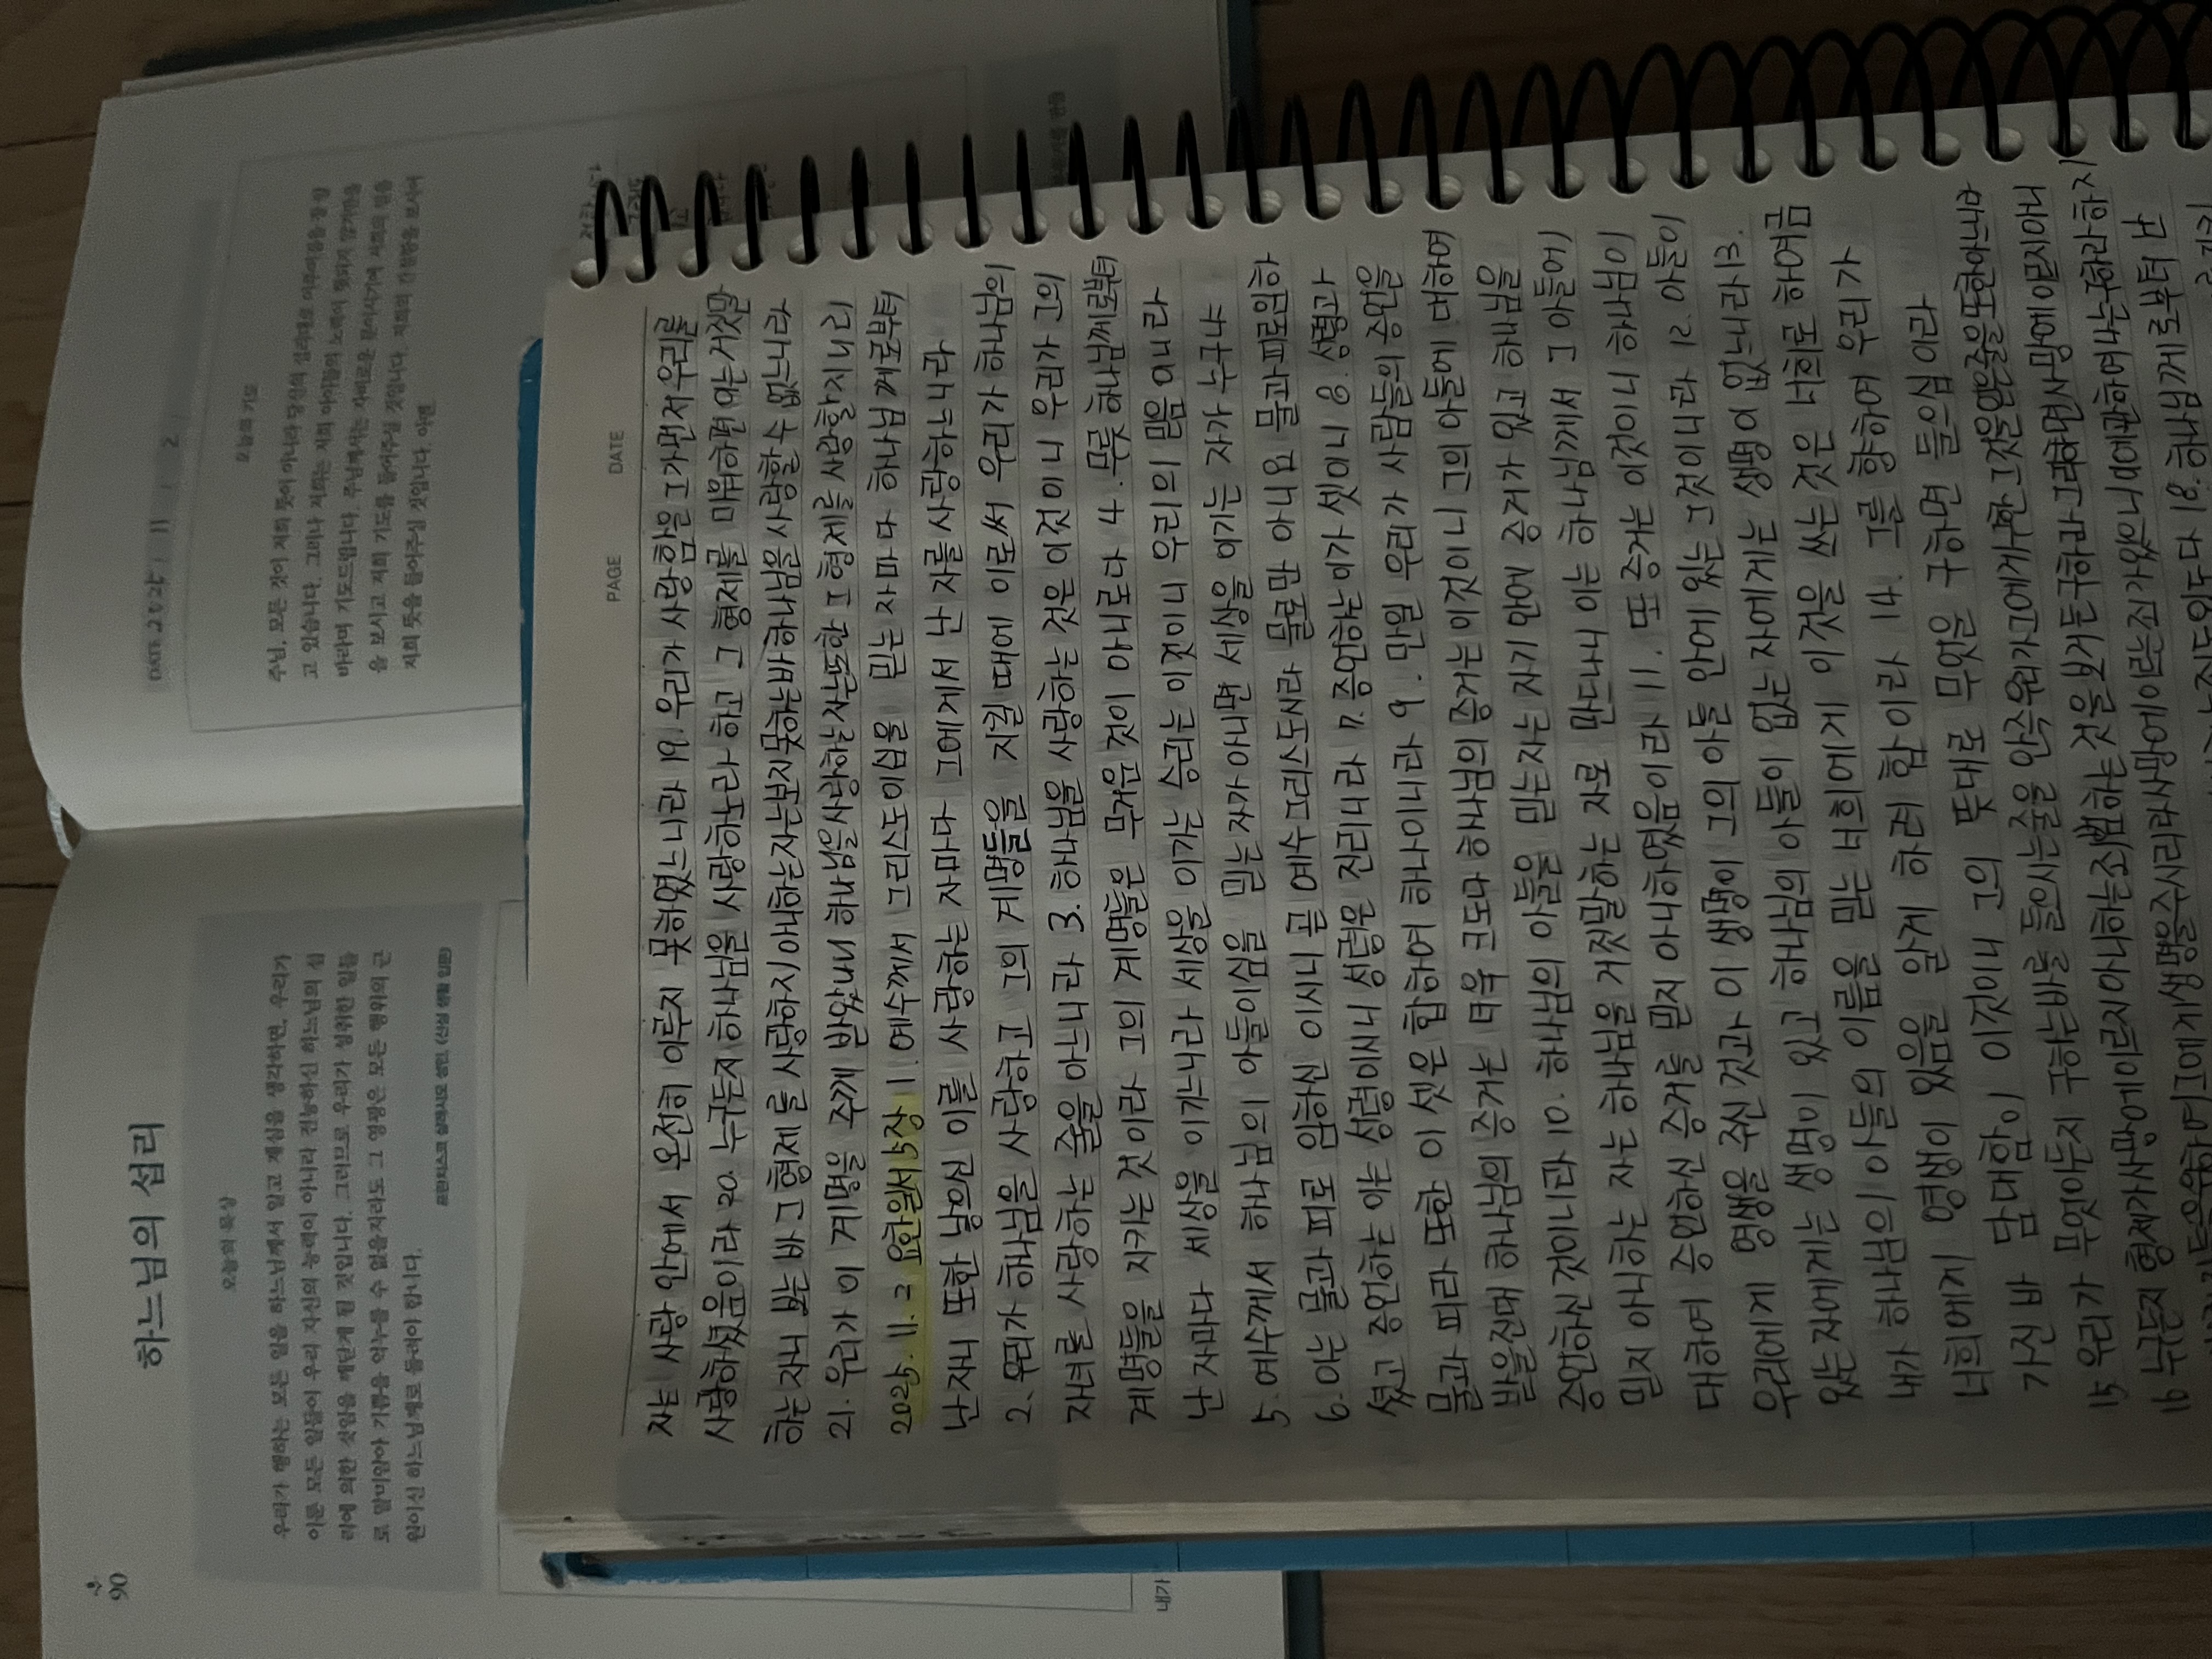 90
하느님의 섭리
오늘의 묵상
우리가 행하는 모든 일을 하느님께서 알고 계심을 생각하면, 우리가
이룬 모든 일들이 우리 자신의 능력이 아니라 전능하신 하느님의 섭
리에 의한 것임을 깨닫게 될 것입니다. 그러므로 우리가 성취한 일들
로 말미암아 기쁨을 억누를 수 없을지라도 그 영광은 모든 행위의 근
원이신 하느님께로 돌려야 합니다.
내가
DATE 2025 / 11 / 2
오늘의 기도
주님, 모든 것이 저희 뜻이 아니라 당신의 섭리대로 이루어짐을 믿
고 있습니다. 그러나 저희는 저희 이익들의 노력이 헛되지 않기를
바라며 기도드립니다. 주님께서는 자비로운 분이시기에 저희의 믿음
을 보시고 저희 기도를 들어주실 것입니다. 저희의 간절함을 보시어
저희 뜻을 들어주실 것입니다. 아멘.
PAGE DATE
자는 사랑 안에서 온전히 이루지 못하였느니라 19. 우리가 사랑함은 그가 먼저 우리를
사랑하셨음이라 20. 누구든지 하나님을 사랑하노라 하고 그 형제를 미워하면 이는 거짓말
하는 자니 보는 바 그 형제를 사랑하지 아니하는 자는 보지 못하는 바 하나님을 사랑할 수 없느니라
21. 우리가 이 계명을 주께 받았나니 하나님을 사랑하는 자는 또한 그 형제를 사랑할지니라
2025. 11. 2 요한일서 5장 1. 예수께서 그리스도이심을 믿는 자마다 하나님께로부터
난 자니 또한 낳으신 이를 사랑하는 자마다 그에게서 난 자를 사랑하느니라
2. 우리가 하나님을 사랑하고 그의 계명들을 지킬 때에 이로써 우리가 하나님의
자녀를 사랑하는 줄을 아느니라 3. 하나님을 사랑하는 것은 이것이니 우리가 그의
계명들을 지키는 것이라 그의 계명들은 무거운 것이 아니로다 4. 무릇 하나님께로부터
난 자마다 세상을 이기느니라 세상을 이기는 승리는 이것이니 우리의 믿음이니라
5. 예수께서 하나님의 아들이심을 믿는 자가 아니면 세상을 이기는 자가 누구냐
6. 이는 물과 피로 임하신 이시니 곧 예수 그리스도시라 물로만 아니요 물과 피로 임하
셨고 증언하는 이는 성령이시니 성령은 진리니라 7. 증언하는 이가 셋이니 8. 성령과
물과 피라 또한 이 셋은 합하여 하나이니라 9. 만일 우리가 사람들의 증언을
받을진대 하나님의 증거는 더욱 크도다 하나님의 증거는 이것이니 그의 아들에 대하여
증언하신 것이니라 10. 하나님의 아들을 믿는 자는 자기 안에 증거가 있고 하나님을
믿지 아니하는 자는 하나님을 거짓말하는 자로 만드나니 이는 하나님께서 그 아들에
대하여 증언하신 증거를 믿지 아니하였음이라 11. 또 증거는 이것이니 하나님이
우리에게 영생을 주신 것과 이 생명이 그의 아들 안에 있는 그것이니라 12. 아들이
있는 자에게는 생명이 있고 하나님의 아들이 없는 자에게는 생명이 없느니라 13.
내가 하나님의 아들의 이름을 믿는 너희에게 이것을 쓰는 것은 너희로 하여금
너희에게 영생이 있음을 알게 하려 함이라 14. 그를 향하여 우리가
가진 바 담대함이 이것이니 그의 뜻대로 무엇을 구하면 들으심이라
15. 우리가 무엇이든지 구하는 바를 들으시는 줄을 안즉 우리가 그에게 구한 그것을 얻은 줄을 또한 아느니라
16 누구든지 형제가 사망에 이르지 아니하는 죄 범하는 것을 보거든 구하라 그리하면 사망에 이르지 아니